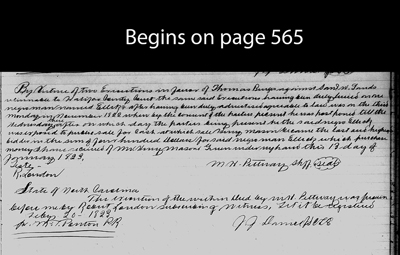 Begins on page 565
By Virtue of two Executions in favour of Thomas Burges against Saml W. Lands
returnable to Halifax County Court the same said Executions having been duly levied on one
negro man named Elleck & after having been duly advertised agreeable to law was on the third
monday in November 1822 when by the consent of the parties present he was postponed till the
day after on which day the parties being present he the said negro Elleck
was exposed to public sale for cash at which sale Henry Mason became the last and highest
bidder in the sum of four hundred dollars for said negro man Elleck which purchase
money I have received of Mr Henry Mason Given under my hand this 18 day of
January 1823.
Test
M. H. Pettway Shff (seal)
State of North Carolina
The execution of the within deed by M. H. Pettway was proven
before me by
Witness, Let it be registered
Feby 20 1823
J J Daniel